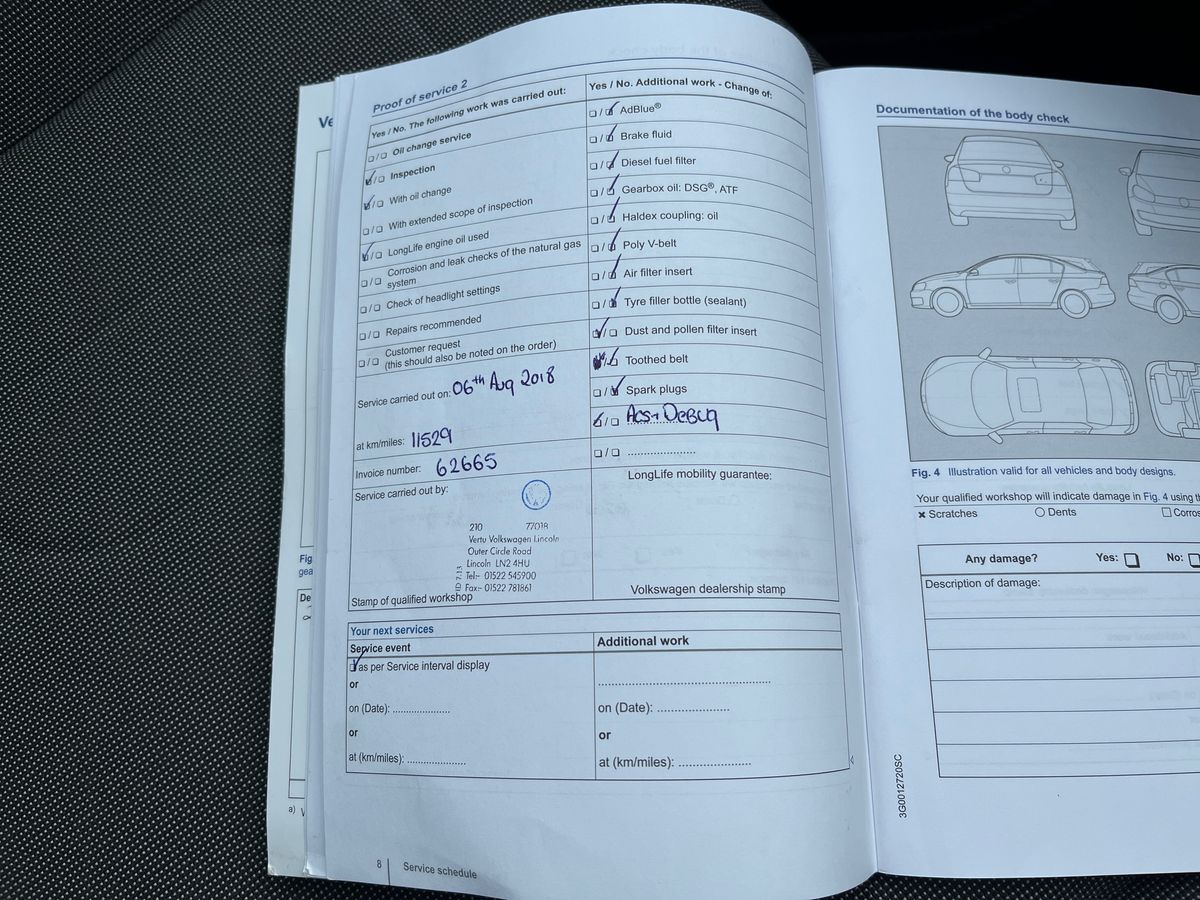 Ve
Fig
gea
De
a)
Proof of service 2
Yes / No. The following work was carried out:
❏/❏ Oil change service
❏/❏ Inspection
❏/❏ With oil change
❏/❏ With extended scope of inspection
❏/❏ LongLife engine oil used
❏/❏ Corrosion and leak checks of the natural gas
system
❏/❏ Check of headlight settings
❏/❏ Repairs recommended
❏/❏ Customer request
(this should also be noted on the order)
Service carried out on: 06th Aug 2018
at km/miles: 11529
Invoice number: 62665
Service carried out by:
210 77018
Vertu Volkswagen Lincoln
Outer Circle Road
Lincoln LN2 4HU
Tel:- 01522 545900
Fax:- 01522 781861
ID 7.13
Stamp of qualified workshop
Yes / No. Additional work - Change of:
❏/❏ AdBlue®
❏/❏ Brake fluid
❏/❏ Diesel fuel filter
❏/❏ Gearbox oil: DSG®, ATF
❏/❏ Haldex coupling: oil
❏/❏ Poly V-belt
❏/❏ Air filter insert
❏/❏ Tyre filler bottle (sealant)
❏/❏ Dust and pollen filter insert
❏/❏ Toothed belt
❏/❏ Spark plugs
❏/❏ Acs+ DeBug
❏/❏ ....................
LongLife mobility guarantee:
Volkswagen dealership stamp
Your next services
Service event
❏ as per Service interval display
or
on (Date): .................
or
at (km/miles): .................
Additional work
..................................................
on (Date): .....................
or
at (km/miles): .....................
8 Service schedule
Documentation of the body check
Fig. 4 Illustration valid for all vehicles and body designs.
Your qualified workshop will indicate damage in Fig. 4 using th
× Scratches ○ Dents ❏ Corros
Any damage? Yes: ❏ No: ❏
Description of damage:
3G0012720SC